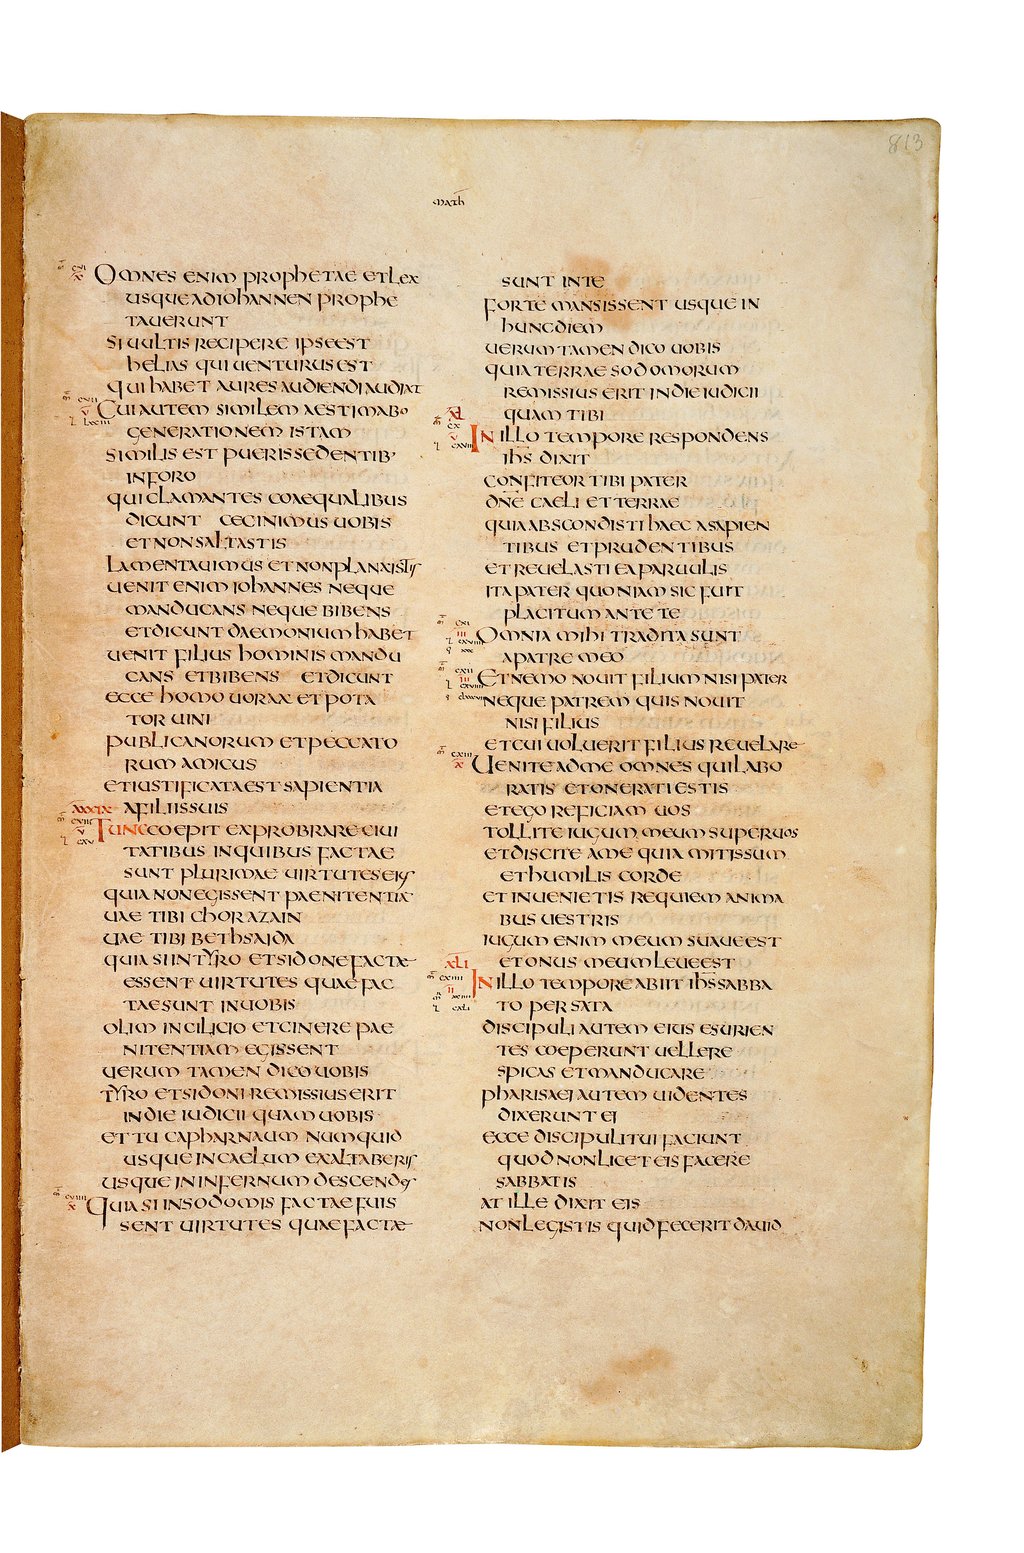 813
MATH
OMNES ENIM PROPHETAE ET LEX
USQUE AD IOHANNEN PROPHE
TAUERUNT
SI UULTIS RECIPERE IPSE EST
HELIAS QUI UENTURUS EST
QUI HABET AURES AUDIENDI AUDIAT
CUI AUTEM SIMILEM AESTIMABO
GENERATIONEM ISTAM
SIMILIS EST PUERIS SEDENTIB'
IN FORO
QUI CLAMANTES COAEQUALIBUS
DICUNT CECINIMUS UOBIS
ET NON SALTASTIS
LAMENTAUIMUS ET NON PLANXISTIS
UENIT ENIM IOHANNES NEQUE
MANDUCANS NEQUE BIBENS
ET DICUNT DAEMONIUM HABET
UENIT FILIUS HOMINIS MANDU
CANS ET BIBENS ET DICUNT
ECCE HOMO UORAX ET POTA
TOR UINI
PUBLICANORUM ET PECCATO
RUM AMICUS
ET IUSTIFICATA EST SAPIENTIA
XXXIX A FILIIS SUIS
TUNC COEPIT EXPROBRARE CIUI
TATIBUS IN QUIBUS FACTAE
SUNT PLURIMAE UIRTUTES EIUS
QUIA NON EGISSENT PAENITENTIA
UAE TIBI CHORAZAIN
UAE TIBI BETHSAIDA
QUIA SI IN TYRO ET SIDONE FACTAE
ESSENT UIRTUTES QUAE FAC
TAE SUNT IN UOBIS
OLIM IN CILICIO ET CINERE PAE
NITENTIAM EGISSENT
UERUM TAMEN DICO UOBIS
TYRO ET SIDONI REMISSIUS ERIT
IN DIE IUDICII QUAM UOBIS
ET TU CAPHARNAUM NUMQUID
USQUE IN CAELUM EXALTABERIS
USQUE IN INFERNUM DESCENDES
QUIA SI IN SODOMIS FACTAE FUIS
SENT UIRTUTES QUAE FACTAE
SUNT IN TE
FORTE MANSISSENT USQUE IN
HUNC DIEM
UERUM TAMEN DICO UOBIS
QUIA TERRAE SODOMORUM
REMISSIUS ERIT IN DIE IUDICII
XL QUAM TIBI
IN ILLO TEMPORE RESPONDENS
IHS DIXIT
CONFITEOR TIBI PATER
DNE CAELI ET TERRAE
QUIA ABSCONDISTI HAEC A SAPIEN
TIBUS ET PRUDENTIBUS
ET REUELASTI EA PARUULIS
ITA PATER QUONIAM SIC FUIT
PLACITUM ANTE TE
OMNIA MIHI TRADITA SUNT
A PATRE MEO
ET NEMO NOUIT FILIUM NISI PATER
NEQUE PATREM QUIS NOUIT
NISI FILIUS
ET CUI UOLUERIT FILIUS REUELARE
UENITE AD ME OMNES QUI LABO
RATIS ET ONERATI ESTIS
ET EGO REFICIAM UOS
TOLLITE IUGUM MEUM SUPER UOS
ET DISCITE A ME QUIA MITIS SUM
ET HUMILIS CORDE
ET INUENIETIS REQUIEM ANIMA
BUS UESTRIS
IUGUM ENIM MEUM SUAUE EST
XLI ET ONUS MEUM LEUE EST
IN ILLO TEMPORE ABIIT IHS SABBA
TO PER SATA
DISCIPULI AUTEM EIUS ESURIEN
TES COEPERUNT UELLERE
SPICAS ET MANDUCARE
PHARISAEI AUTEM UIDENTES
DIXERUNT EI
ECCE DISCIPULI TUI FACIUNT
QUOD NON LICET EIS FACERE
SABBATIS
AT ILLE DIXIT EIS
NON LEGISTIS QUID FECERIT DAUID